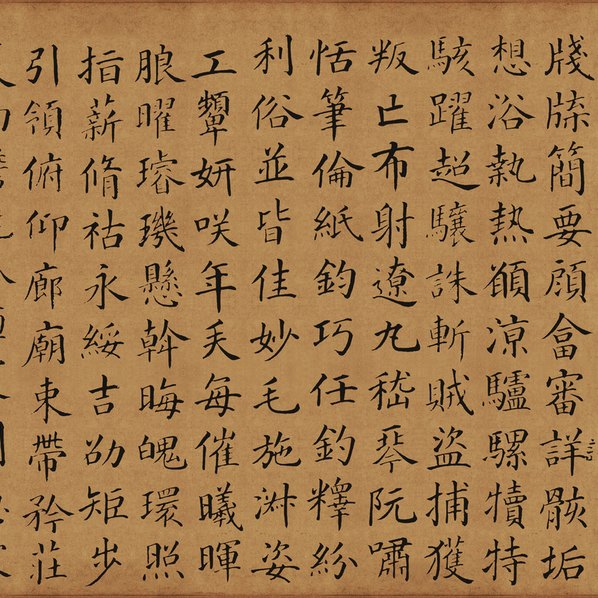 牋牒簡要顧畣審詳骸垢
想浴執熱願涼驢騾犢特
駭躍超驤誅斬賊盜捕獲
叛亡布射遼丸嵇琴阮嘯
恬筆倫紙鈞巧任釣釋紛
利俗並皆佳妙毛施淑姿
工顰妍咲年矢每催曦暉
朗曜璿璣懸斡晦魄環照
指薪脩祜永綏吉劭矩步
引領俯仰廊廟束帶矜莊